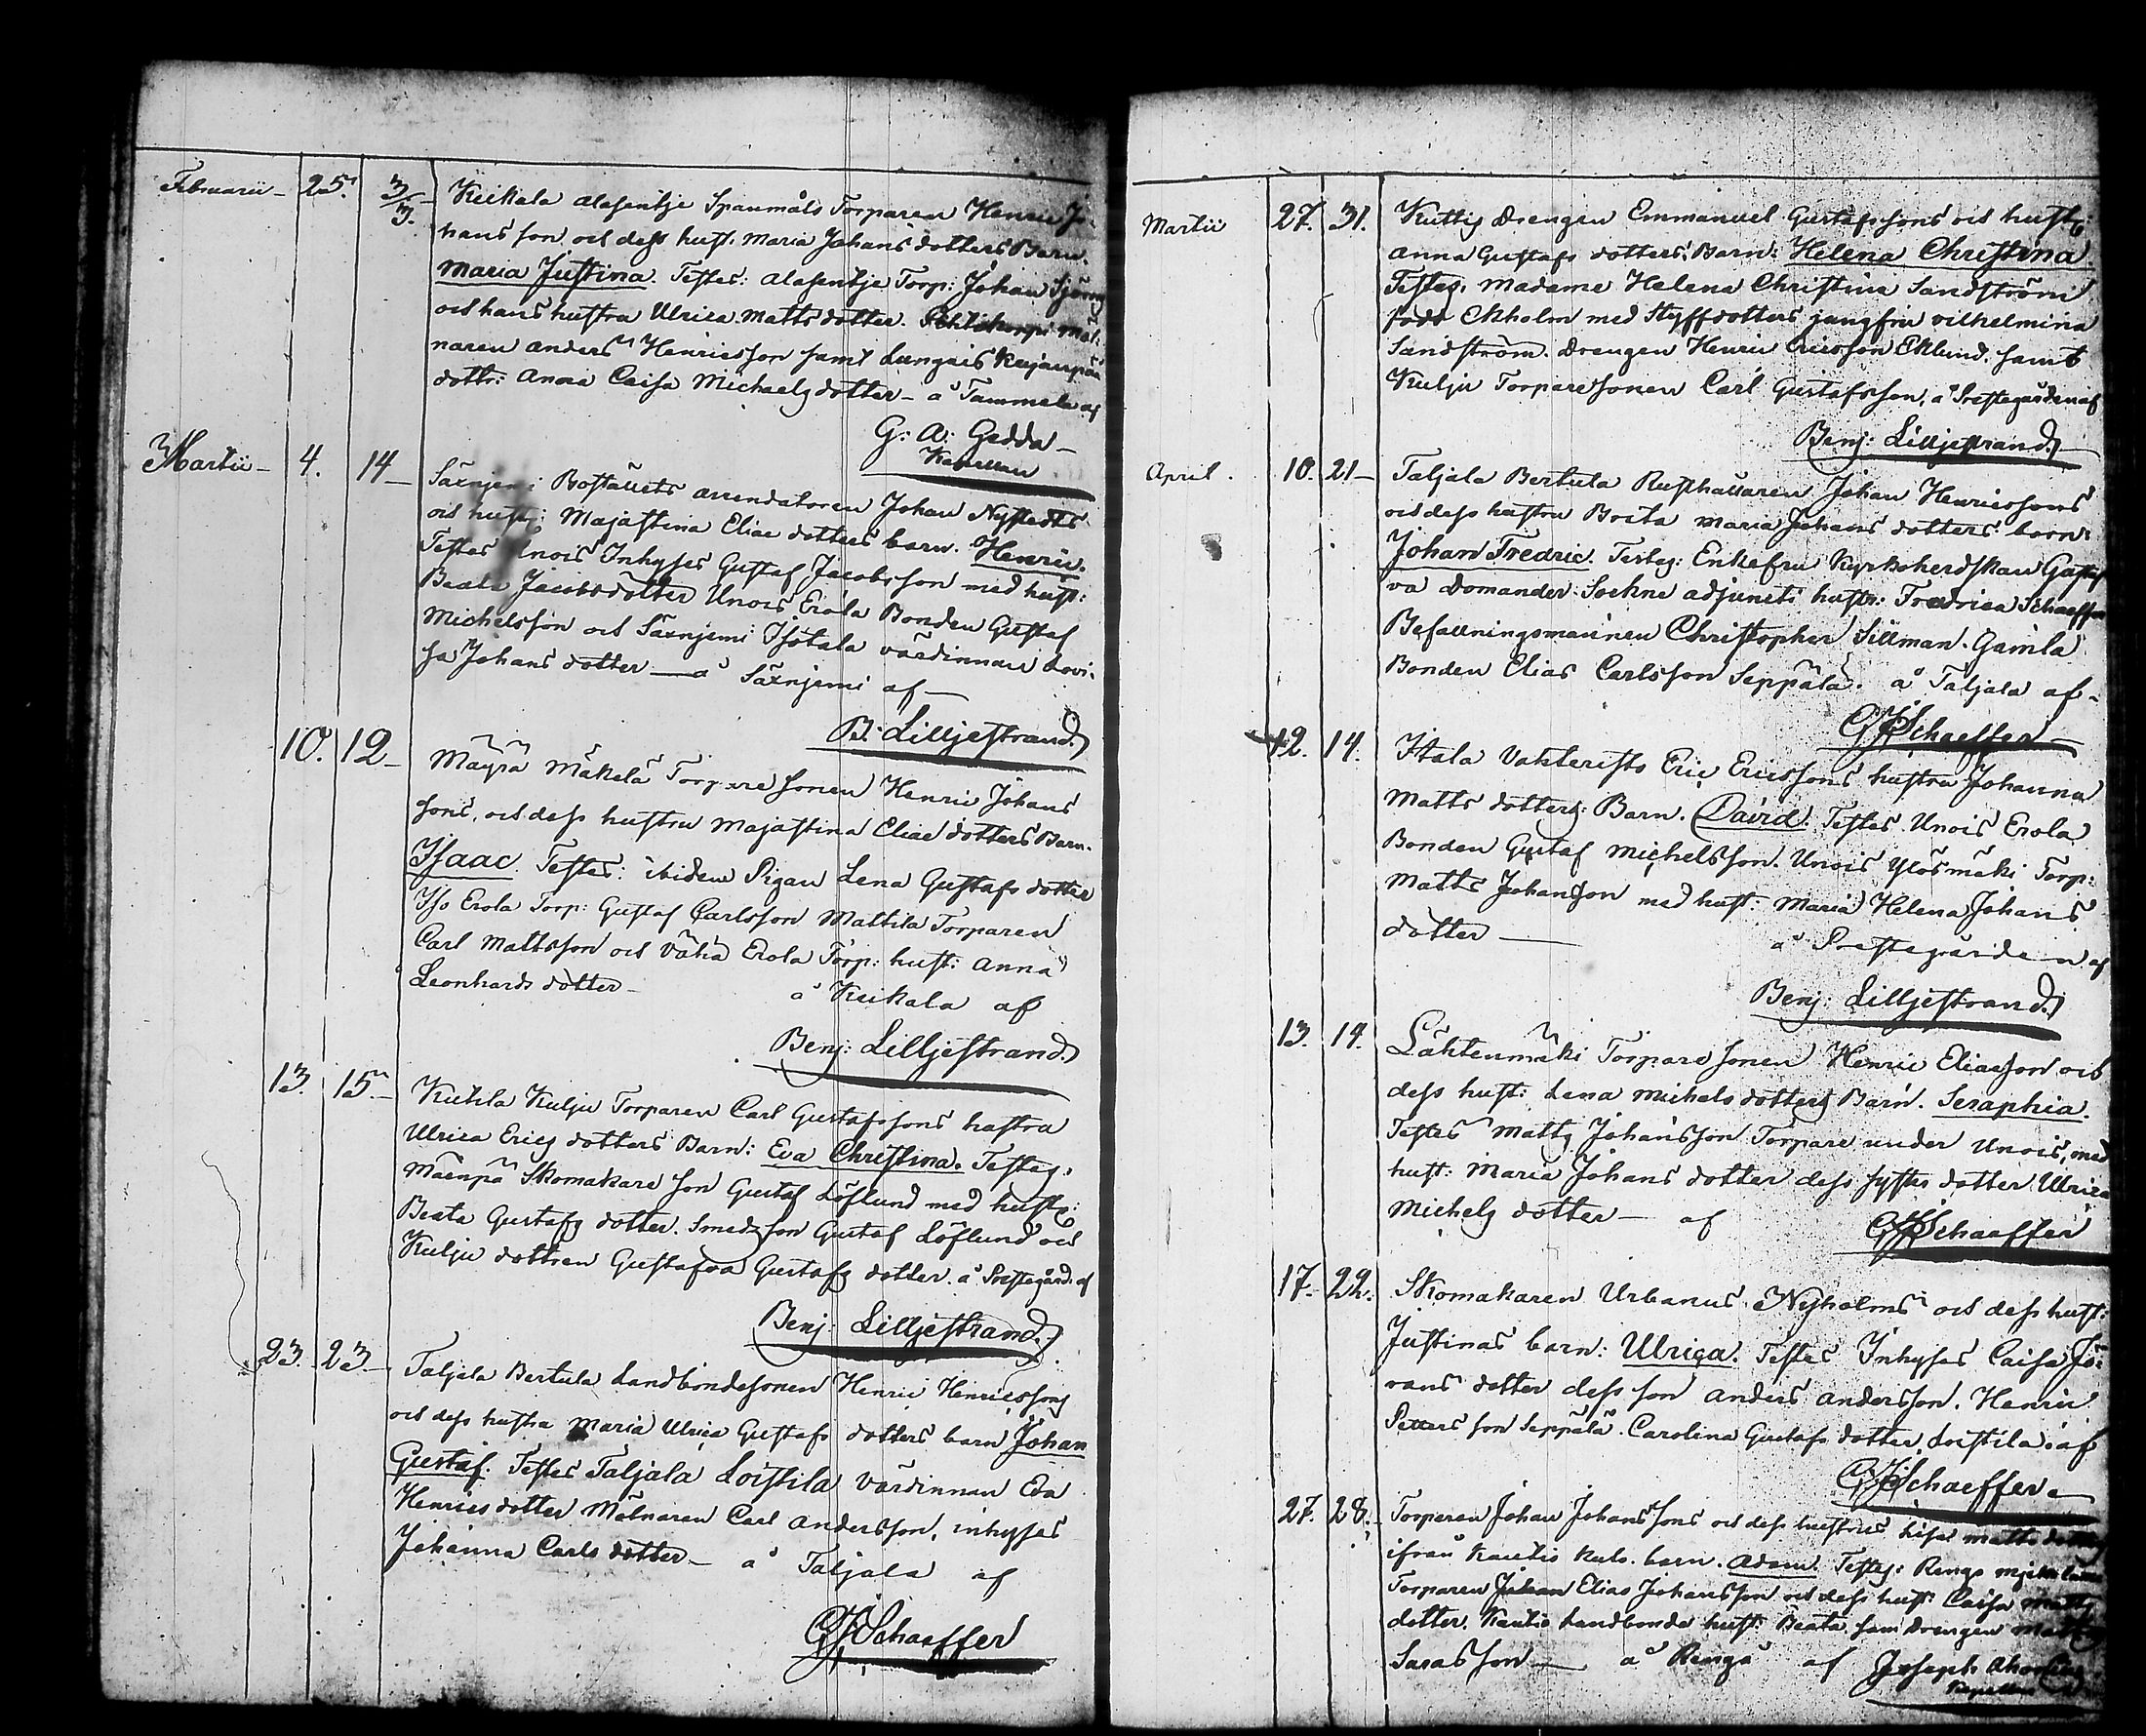 Februarii - 25. 3/3. Keikala alasentje Spanmåls Torparen Henric Jo-
hans son och dess hust. Maria Johans dotters Barn.
Maria Justina. Testes: alasentje Torp: Johan
och hans hustru Ulrica Matts dotter. Möl-
naren Anders Henricsson samt Lungois
dottr: Anna Caisa Michaels dotter - å Tammela af
G: A: Gedda -
Kapellan
Martii - 4. 14 - Säxnjemi Boställets arrendatoren Johan Nystedts
och hustr: Majastina Eliae dotters barn. Henric.
Testes Unois Inhyses Gustaf Jacobsson med hust:
Beata Jacobsdotter Unois Erola Bonden Gustaf
Michelsson och Säxnjemi Isotala värdinnan Lovi-
sa Johans dotter — å Säxnjemi af —
B: Lilljestrand.
10. 12 - Mäyrä Mäkelä Torpare sonen Henric Johans
sons, och dess hustru Majastina Eliae dotters Barn.
Isaac. Testes: ibidem Pigan Lena Gustafs dotter
Iso Erola Torp: Gustaf Carlsson Mattila Torparen
Carl Mattsson och Vähä Erola Torp: hust: Anna
Leonhards dotter - å Keikala af
Benj: Lilljestrand
13. 15. - Kutila Kulju Torparen Carl Gustafssons hustru
Ulrica Erics dotters Barn: Eva Christina. Testes.
Mäenpä Skomakare son Gustaf Löflund med hustr:
Beata Gustafs dotter. Smeds son Gustaf Löflund och
Kulju dottren Gustafva Gustafs dotter. å Prestegård. af
Benj: Lilljestrand.
23. 23. - Taljala Bertula Landbondesonen Henric Henricssons
och dess hustru Maria Ulrica Gustafs dotters barn Johan
Gustaf. Testes Taljala Loistila värdinnan Eva
Henrics dotter Mölnaren Carl Andersson, inhyses
Johanna Carls dotter - å Taljala af
GJSchaeffer
Martii 27. 31. Kuttis Drengen Emmanuel Gustafssons och hustr:
Anna Gustafs dotters. Barn: Helena Christina
Testes. Madame Helena Christina Sandström
född Ekholm med Styfdotters jungfru Vilhelmina
Sandström. Drengen Henric Ericsson Eklund. samt
Kulju Torparesonen Carl Gustafsson. å Prestegården af
Benj: Lilljestrand -
April. 10. 21 - Taljala Bertula Rusthållaren Johan Henricssons
och dess hustru Brita Maria Johans dotters barn:
Johan Fredric. Testes: Enkefru Kyrkoherdskan Gustaf
va Domander. Sockne adjuncts hustr: Fredrica Schaeffer
Befallningsmannen Christopher Sillman. Gamla
Bonden Elias Carlsson Seppälä. å Taljala af -
GJSchaeffer -
12. 14. Itala Vakterists Eric Ericssons hustru Johanna
Matts dotters: Barn. David. Testes Unois Erola
Bonden Gustaf Michelsson. Unois Ylösmäki Torp:
Matts Johansson med hust: Maria Helena Johans
dotter — å Prestegården af
Benj: Lilljestrand.
13. 14. Lähtenmäki Torpare sonen Henric Eliaesson och
dess hust: Lena Michels dotters Barn. Seraphia.
Testes Matts Johansson Torpare under Unois, med
hust: Maria Johans dotter dess syster dotter Ulrica
Michels dotter - af GJSchaeffer
17. 22. Skomakaren Urbanus Nyholms och dess hust:
Justinas barn: Ulrica. Testes Inhyses Caisa Jö-
rans dotter dess son Anders Andersson. Henric
Petters son Seppälä. Carolina Gustafs dotter Loistila. af
GJSchaeffer -
27. 28. Torparen Johan Johans Sons och dess hustrus Lisa Matts
ifrån Kautio barn. Adam. Testes: Renge
Torparen Johan Elias Johansson och dess hust: Caisa Matts
dotter. Kautio Landbonde hust: Beata. samt Drengen
Sarasson — å Rengo af Joseph
Kapellan